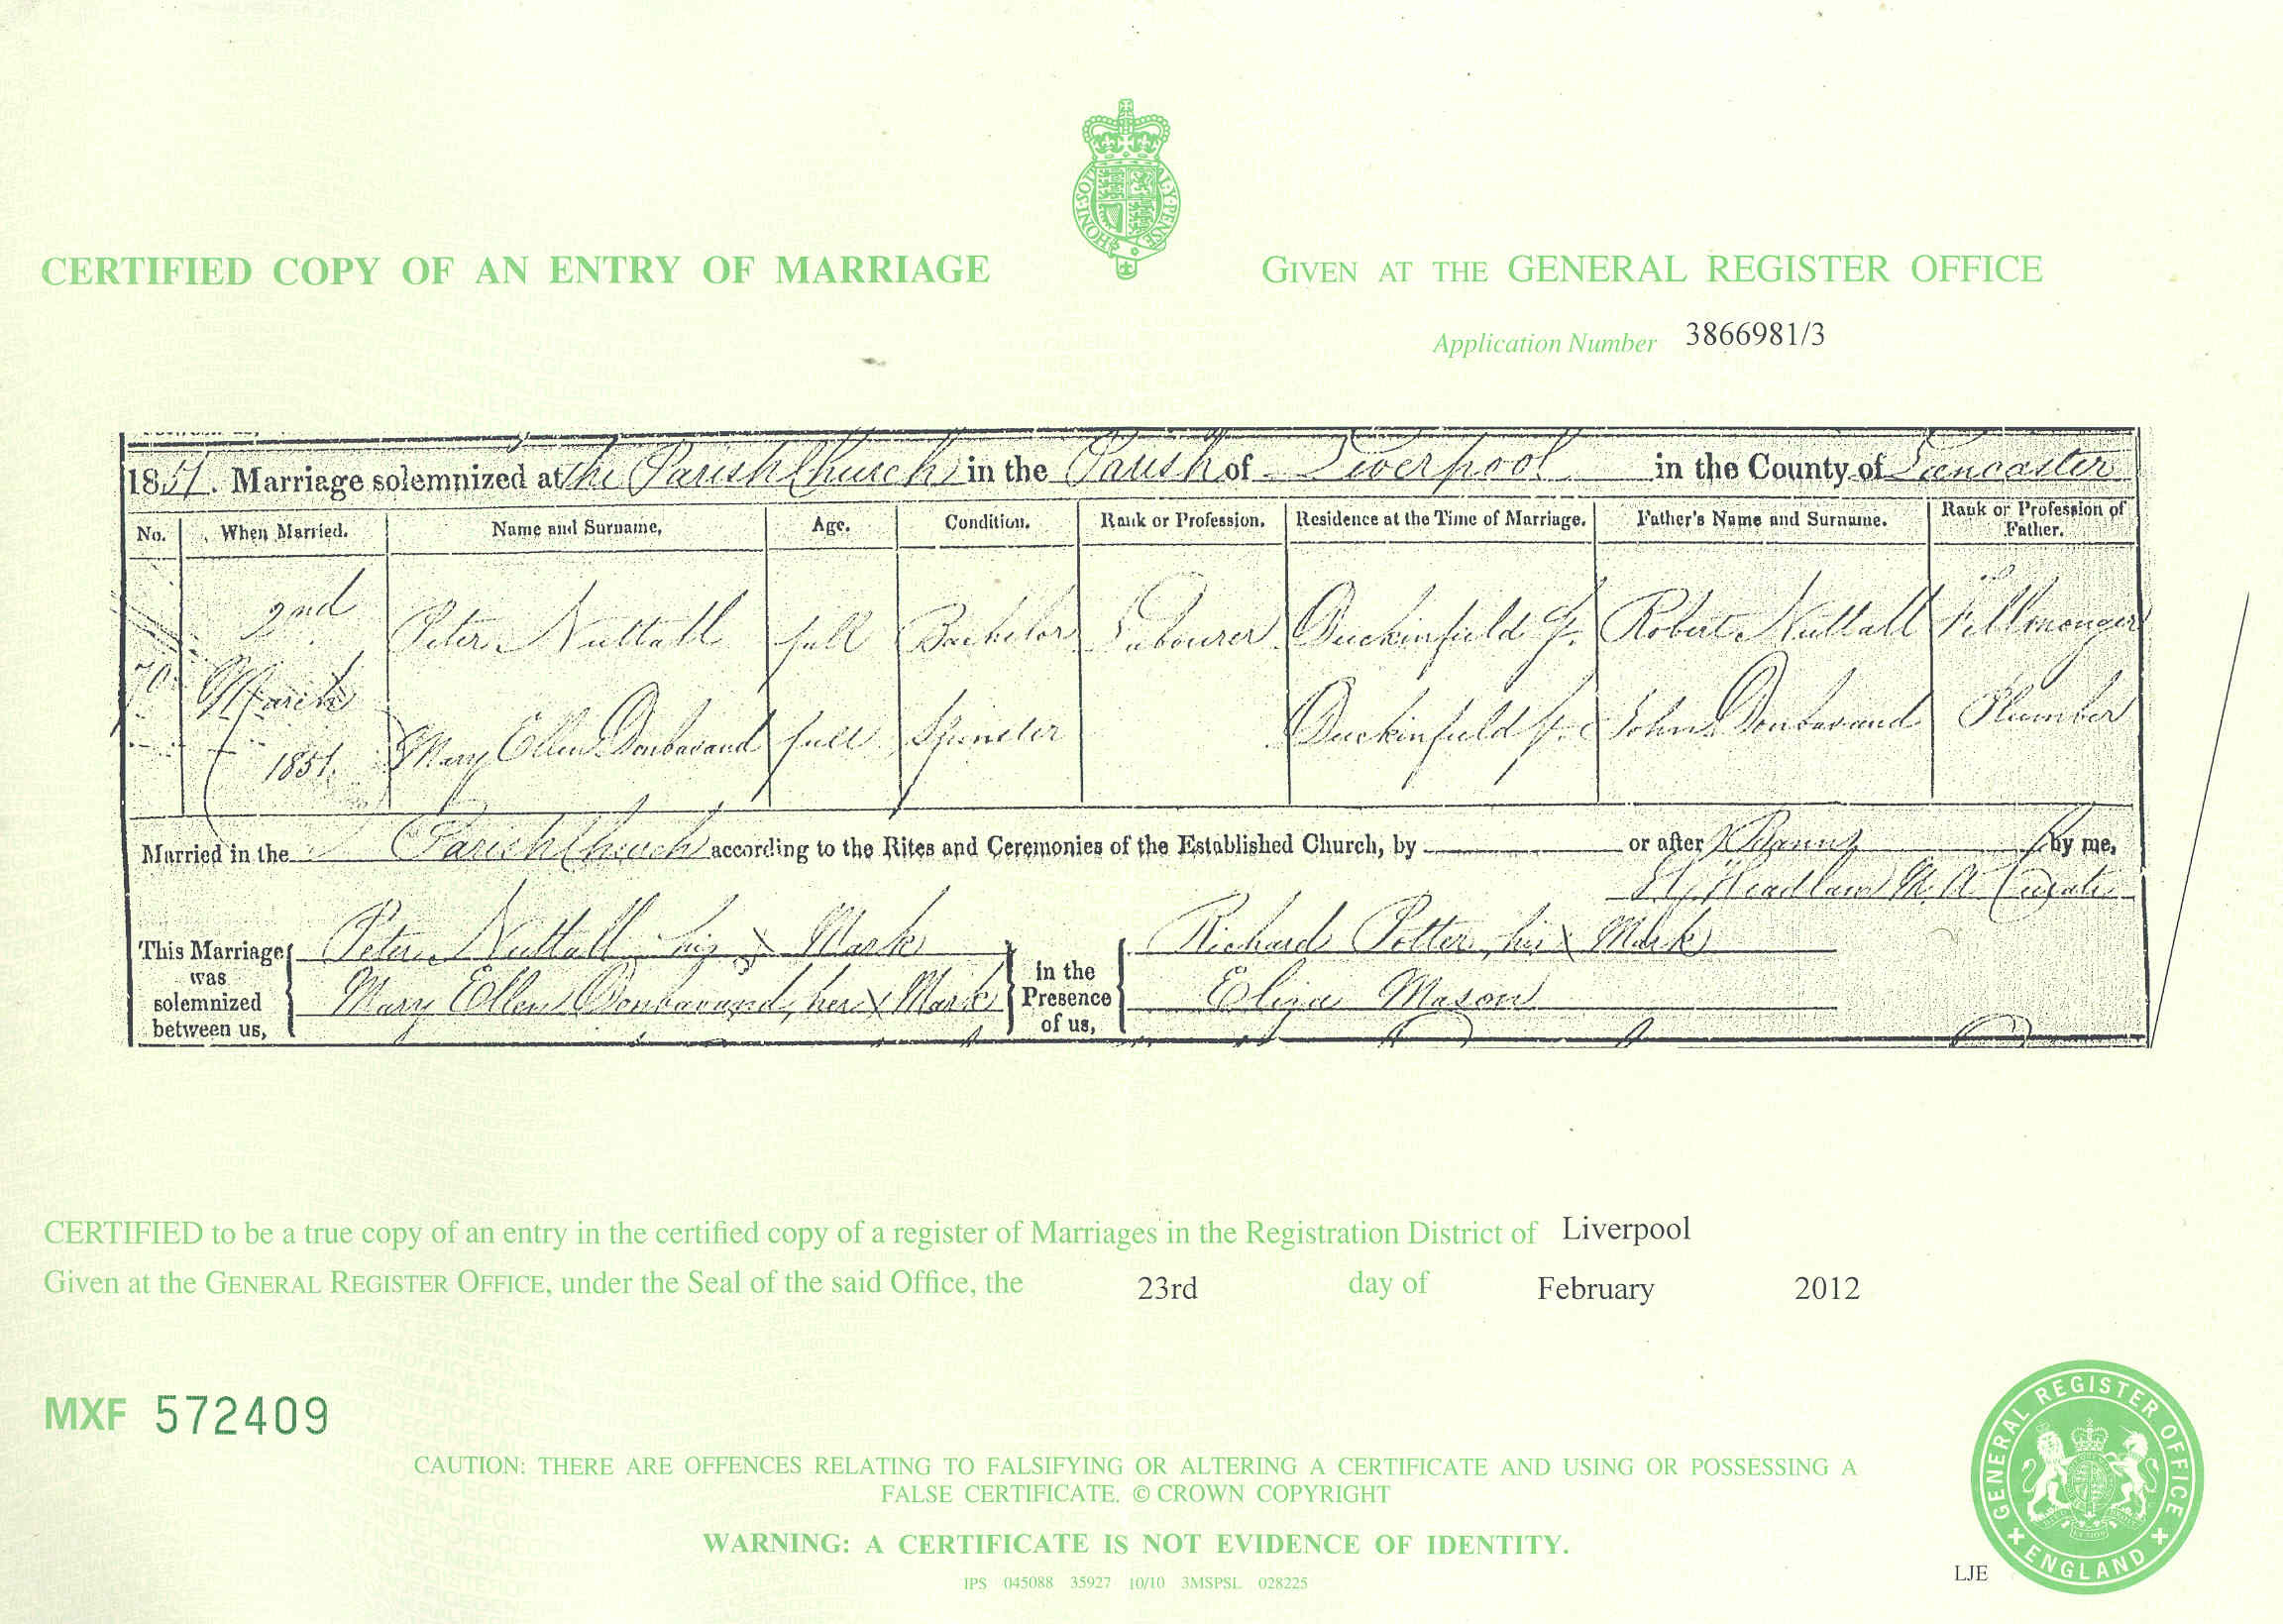 HONI·SOIT·QUI·MAL·Y·PENSE
CERTIFIED COPY OF AN ENTRY OF MARRIAGE
GIVEN AT THE GENERAL REGISTER OFFICE
Application Number 3866981/3
1851. Marriage solemnized at the Parish Church in the Parish of Liverpool in the County of Lancaster
No. When Married. Name and Surname, Age. Condition. Rank or Profession. Residence at the Time of Marriage. Father's Name and Surname. Rank or Profession of Father.
2nd Peter Nuttall full Bachelor Labourer Duckinfield St. Robert Nuttall Fellmonger
70 March
1851. Mary Ellen Donbavand full Spinster Duckinfield St. John Donbavand Plumber
Married in the Parish Church according to the Rites and Ceremonies of the Established Church, by or after Banns by me,
Headlam M.A. Curate
This Marriage was solemnized between us,
Peter Nuttall his X Mark
Mary Ellen Donbavand, her X Mark
in the Presence of us,
Richard Potter, his X Mark
Eliza Mason
CERTIFIED to be a true copy of an entry in the certified copy of a register of Marriages in the Registration District of Liverpool
Given at the GENERAL REGISTER OFFICE, under the Seal of the said Office, the 23rd day of February 2012
MXF 572409
CAUTION: THERE ARE OFFENCES RELATING TO FALSIFYING OR ALTERING A CERTIFICATE AND USING OR POSSESSING A
FALSE CERTIFICATE. © CROWN COPYRIGHT
WARNING: A CERTIFICATE IS NOT EVIDENCE OF IDENTITY.
IPS 045088 35927 10/10 3MSPSL 028225
LJE
GENERAL REGISTER OFFICE
ENGLAND